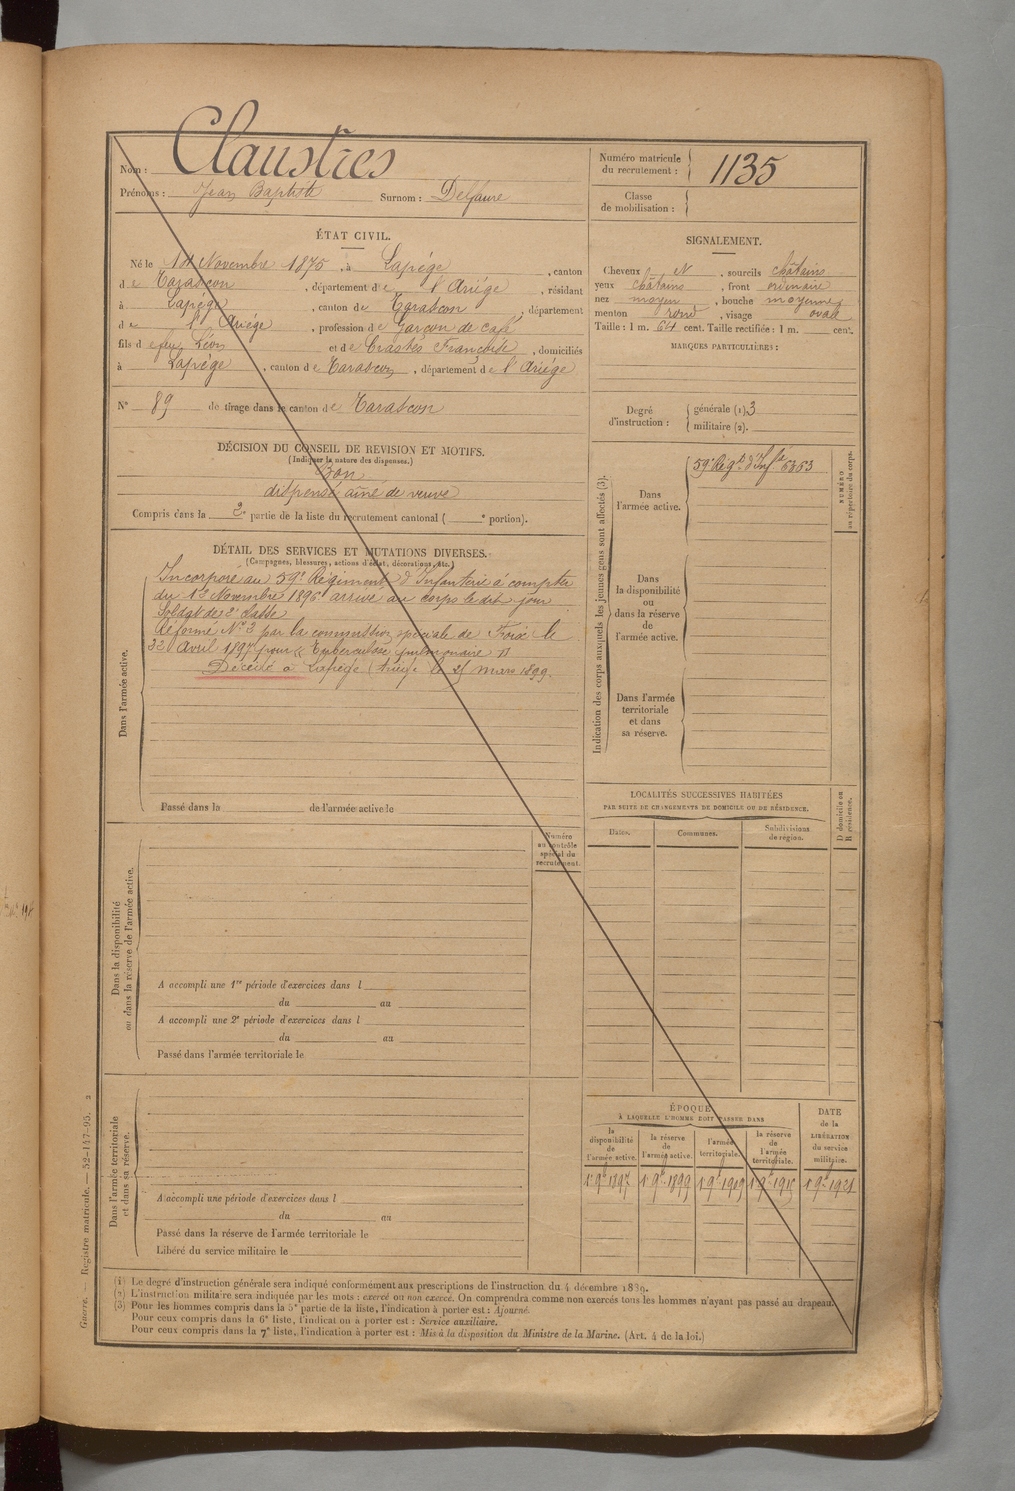 Nom : Claustres
Prénoms : Jean Baptiste Surnom : Delfaure
Numéro matricule du recrutement : 1135
Classe de mobilisation :
ÉTAT CIVIL.
Né le Novembre 1875, à Lapège, canton
de Tarascon, département de l'Ariège, résidant
à Lapège, canton de Tarascon, département
de l'Ariège, profession de garçon de café
fils de feu Léon et de Crastes Françoise, domiciliés
à Lapège, canton de Tarascon, département de l'Ariège
N° 89 de tirage dans le canton de Tarascon
SIGNALEMENT.
Cheveux N, sourcils châtains
yeux châtains, front ordinaire
nez moyen, bouche moyenne
menton rond, visage ovale
Taille : 1 m. 64 cent. Taille rectifiée : 1 m. cent.
MARQUES PARTICULIÈRES :
Degré d'instruction : générale (1). 3
militaire (2).
DÉCISION DU CONSEIL DE REVISION ET MOTIFS.
(Indiquer la nature des dispenses.)
Bon
dispensé aîné de veuve
Compris dans la 2e partie de la liste du recrutement cantonal ( e portion).
DÉTAIL DES SERVICES ET MUTATIONS DIVERSES.
(Campagnes, blessures, actions d'éclat, décorations, etc.)
Dans l'armée active.
Incorporé au 59e Régiment d'Infanterie à compter
du Novembre 1896 arrivé au corps le dit jour
Soldat de 2e classe
Réformé N° 2 par la commission spéciale de Foix le
Avril 1897 pour « Tuberculose pulmonaire »
Décédé à Lapège (Ariège) le mars 1899.
Passé dans la de l'armée active le
Indication des corps auxquels les jeunes gens sont affectés (3).
Dans l'armée active.
59e Régt d'Infie 6363
NUMÉRO au répertoire du corps.
Dans la disponibilité ou dans la réserve de l'armée active.
Dans l'armée territoriale et dans sa réserve.
LOCALITÉS SUCCESSIVES HABITÉES
PAR SUITE DE CHANGEMENTS DE DOMICILE OU DE RÉSIDENCE.
Dates. Communes. Subdivisions de région. D domicile ou R résidence.
Numéro au contrôle spécial du recrutement.
Dans la disponibilité ou dans la réserve de l'armée active.
A accompli une 1re période d'exercices dans l
du au
A accompli une 2e période d'exercices dans l
du au
Passé dans l'armée territoriale le
Dans l'armée territoriale et dans sa réserve.
A accompli une période d'exercices dans l
du au
Passé dans la réserve de l'armée territoriale le
Libéré du service militaire le
ÉPOQUE
À LAQUELLE L'HOMME DOIT PASSER DANS
la disponibilité de l'armée active. la réserve de l'armée active. l'armée territoriale. la réserve de l'armée territoriale.
DATE de la LIBÉRATION du service militaire.
1 9bre 1897 1 9bre 1899 1 9bre 1909 1 9bre 1915 1 9bre 1921
(1) Le degré d'instruction générale sera indiqué conformément aux prescriptions de l'instruction du 4 décembre 1889.
(2) L'instruction militaire sera indiquée par les mots : exercé ou non exercé. On comprendra comme non exercés tous les hommes n'ayant pas passé au drapeau.
(3) Pour les hommes compris dans la 5e partie de la liste, l'indication à porter est : Ajourné.
Pour ceux compris dans la 6e liste, l'indication à porter est : Service auxiliaire.
Pour ceux compris dans la 7e liste, l'indication à porter est : Mis à la disposition du Ministre de la Marine. (Art. 4 de la loi.)
Guerre. — Registre matricule. — 52-147-95. 2